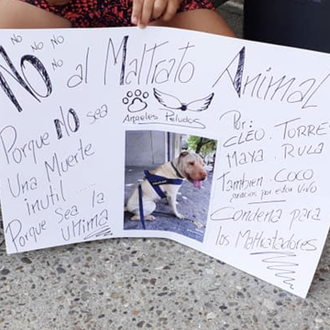 No No No
No al Maltrato Animal
Angeles Peludos
Porque no sea
Una Muerte
inutil ...
Porque sea la
ultima
Por:
CLEO. TURRE
MAYA RULA
Tambien. COCO
gracias por estar vivo
Condena para
los Maltratadores